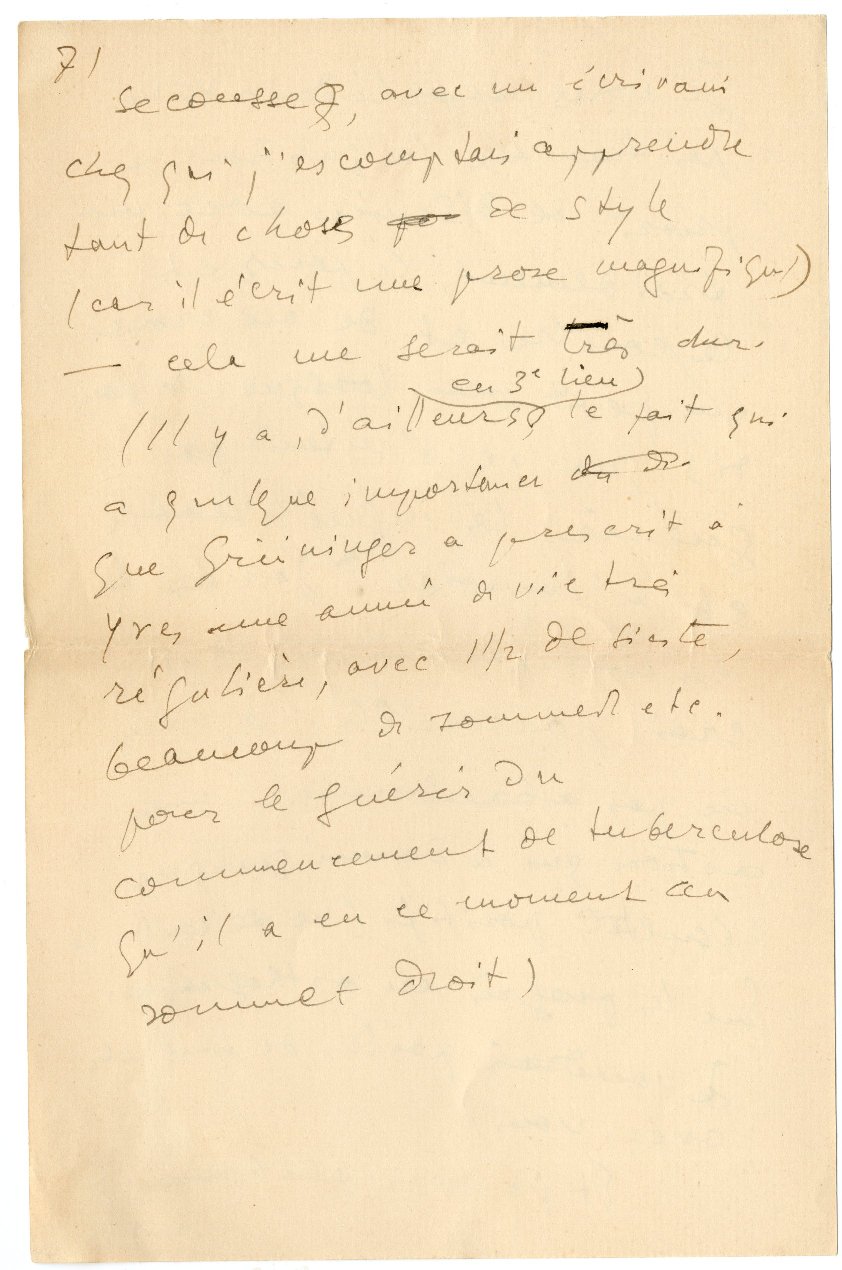 7/
secousses, avec un écrivain
chez qui j'escomptais apprendre
tant de choses de style
(car il écrit une prose magnifique)
— cela me serait très dur.
en 3e lieu)
(Il y a, d'ailleurs, le fait qui
a quelque importance
que Grüninger a prescrit à
Yves une année de vie très
régulière, avec 1 1/2 de sieste,
beaucoup de sommeil etc.
pour le guérir du
commencement de tuberculose
qu'il a en ce moment au
sommet droit)